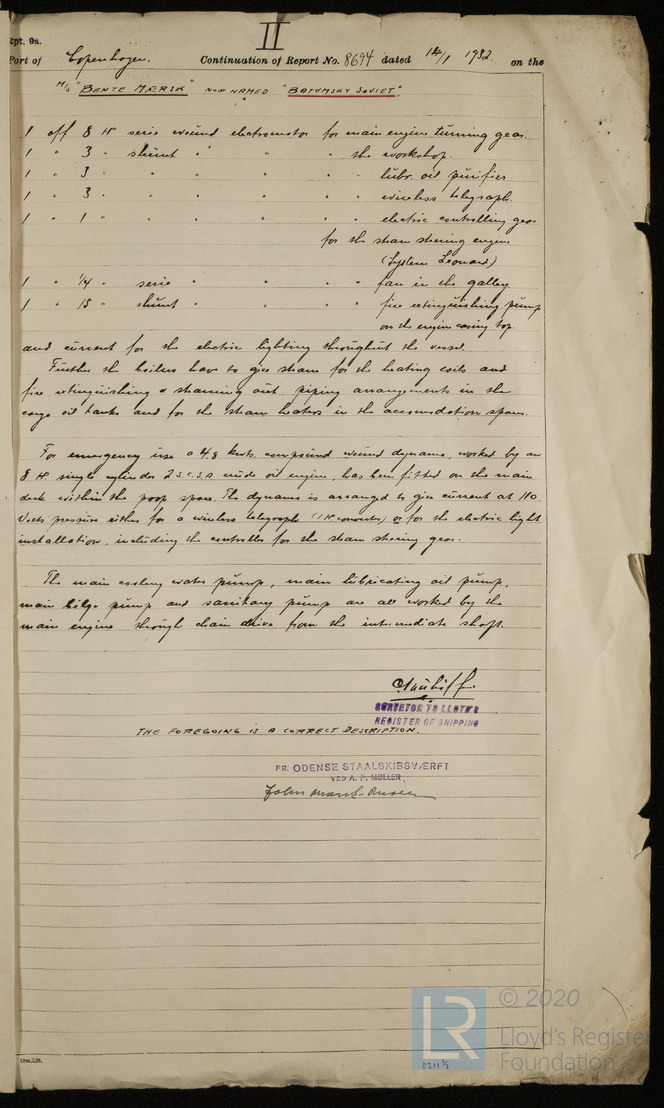 II
Rpt. 9a.
Port of Copenhagen. Continuation of Report No. 8694 dated 14/1 1932. on the
M/S "BENTE MÆRSK" NOW NAMED "BATUMSKY SOVIET".
1 off 8 H serie wound electromotor for main engine turning gear.
1 " 3 " shunt " " " the workshop.
1 " 3 " " " " " " lubr. oil purifier
1 " 3 " " " " " " wireless telegraph.
1 " 1 " " " " " " electric controlling gear
for the steam steering engine
(System Leonard)
1 " 1/4 " serie " " " " fan in the galley
1 " 15 " shunt " " " " fire extinguishing pump
on the engine casing top.
and current for the electric lighting throughout the vessel.
Further the boilers have to give steam for the heating coils and
fire extinguishing & steaming out piping arrangements in the
cargo oil tanks and for the steam heaters in the accomodation spaces.
For emergency use a 4.8 kwts. compound wound dynamo, worked by an
8 H single cylinder 2 S.C.S.A crude oil engine, has been fitted on the main
deck within the poop space. The dynamo is arranged to give current at 110
Volts pressure either for a wireless telegraph (1 H convertor) or for the electric light
installation, including the controller for the steam steering gear.
The main cooling water pump, main lubricating oil pump,
main bilge pump and sanitary pump are all worked by the
main engine through chain drive from the intermediate shaft.
SURVEYOR TO LLOYD'S
REGISTER OF SHIPPING
THE FOREGOING IS A CORRECT DESCRIPTION.
PR. ODENSE STAALSKIBSVÆRFT
VED A. P. MØLLER
John
© 2020
LR
Lloyd's Register
Foundation
0211 1/2